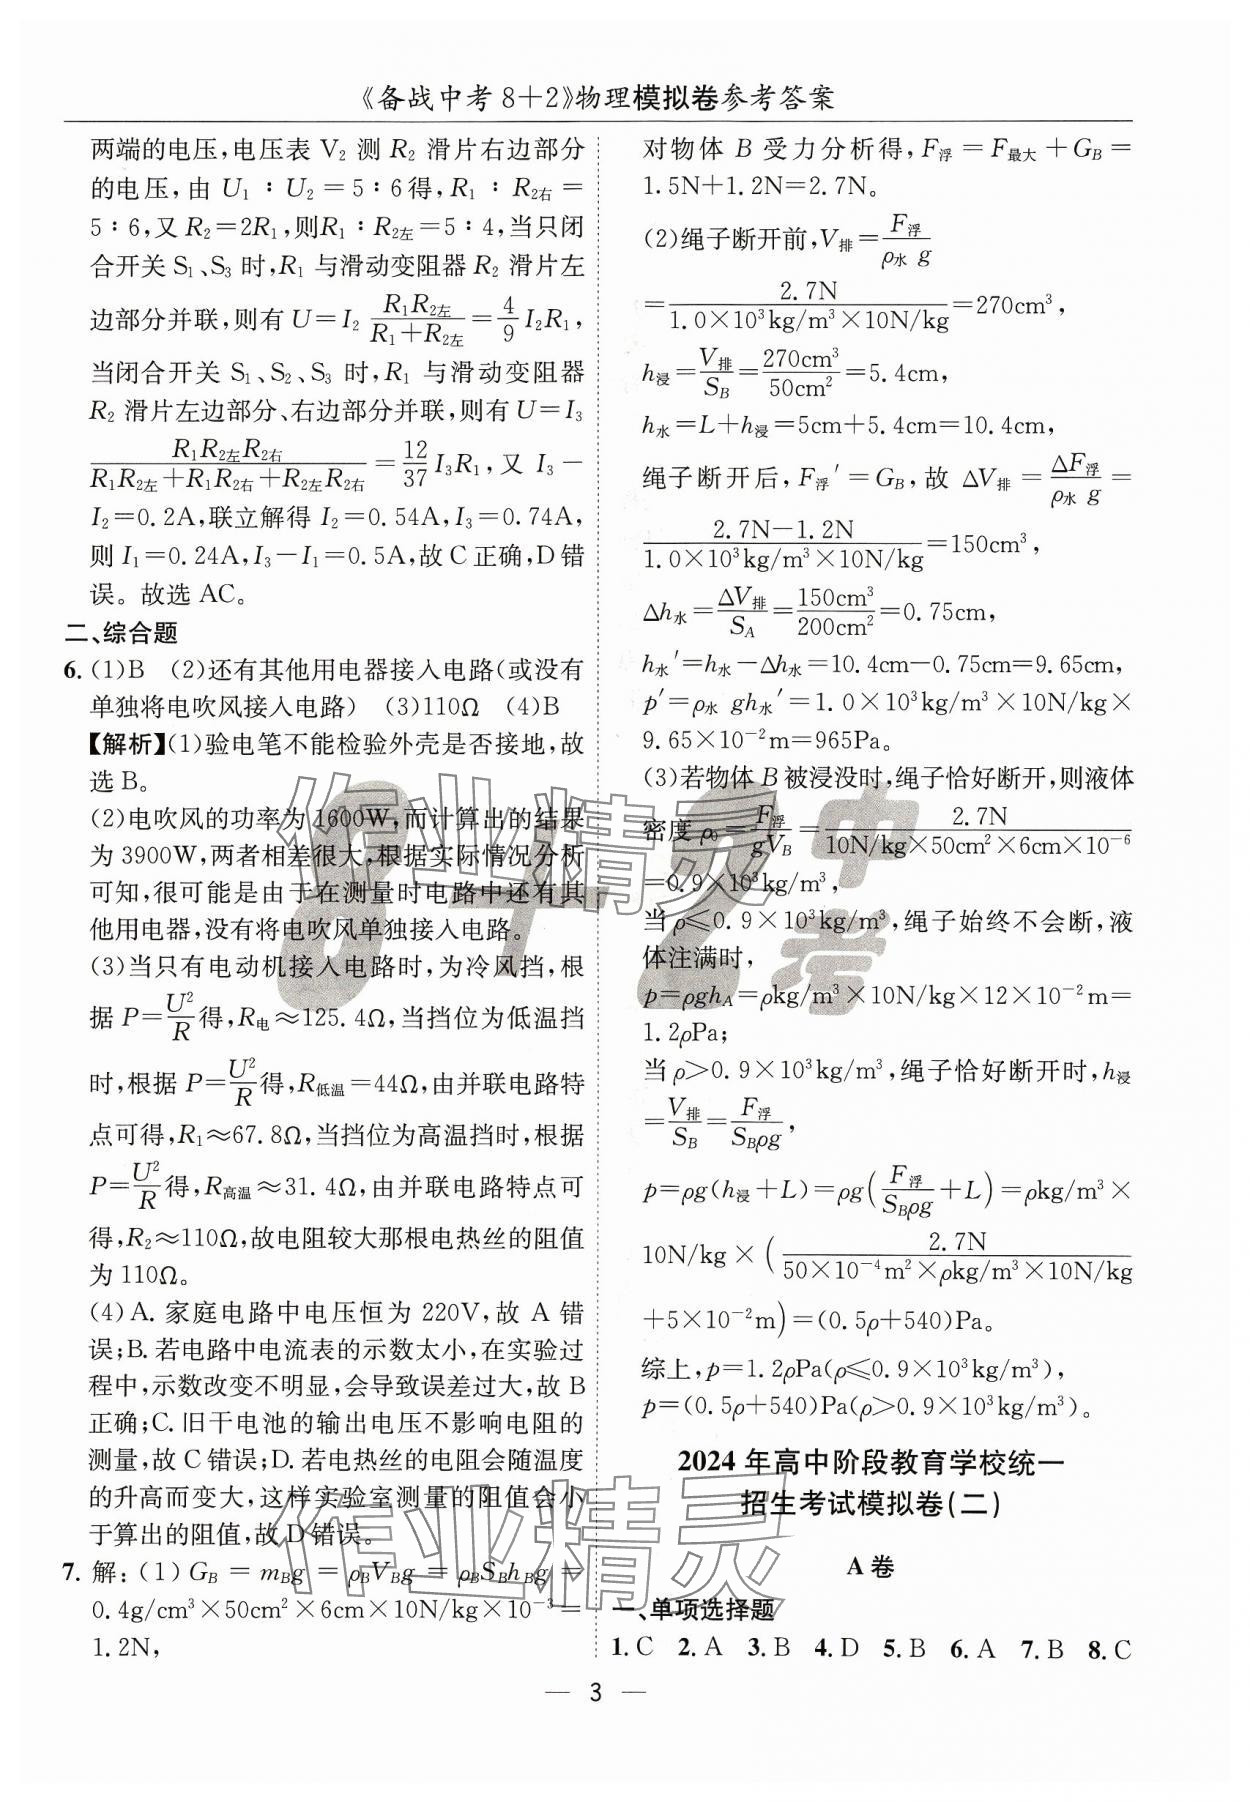 《备战中考8+2》物理模拟卷参考答案
两端的电压,电压表 V₂ 测 R₂ 滑片右边部分
的电压,由 U₁∶U₂=5∶6得,R₁∶R₂右=
5∶6,又R₂=2R₁,则R₁∶R₂左=5∶4,当只闭
合开关 S₁、S₃ 时,R₁ 与滑动变阻器 R₂ 滑片左
边部分并联,则有 U=I₂ R₁R₂左/(R₁+R₂左)=4/9 I₂R₁,
当闭合开关 S₁、S₂、S₃ 时,R₁ 与滑动变阻器
R₂ 滑片左边部分、右边部分并联,则有 U=I₃
R₁R₂左R₂右/(R₁R₂左+R₁R₂右+R₂左R₂右)=12/37 I₃R₁,又 I₃-
I₂=0.2A,联立解得 I₂=0.54A,I₃=0.74A,
则 I₁=0.24A,I₃-I₁=0.5A,故C正确,D错
误。故选 AC。
二、综合题
6. (1)B (2)还有其他用电器接入电路(或没有
单独将电吹风接入电路) (3)110Ω (4)B
【解析】(1)验电笔不能检验外壳是否接地,故
选 B。
(2)电吹风的功率为 1600W,而计算出的结果
为 3900W,两者相差很大,根据实际情况分析
可知,很可能是由于在测量时电路中还有其
他用电器,没有将电吹风单独接入电路。
(3)当只有电动机接入电路时,为冷风挡,根
据 P=U²/R 得,R电≈125.4Ω,当挡位为低温挡
时,根据 P=U²/R 得,R低温=44Ω,由并联电路特
点可得,R₁≈67.8Ω,当挡位为高温挡时,根据
P=U²/R 得,R高温≈31.4Ω,由并联电路特点可
得,R₂≈110Ω,故电阻较大那根电热丝的阻值
为 110Ω。
(4)A. 家庭电路中电压恒为 220V,故 A 错
误;B. 若电路中电流表的示数太小,在实验过
程中,示数改变不明显,会导致误差过大,故 B
正确;C. 旧干电池的输出电压不影响电阻的
测量,故 C 错误;D. 若电热丝的电阻会随温度
的升高而变大,这样实验室测量的阻值会小
于算出的阻值,故 D 错误。
7. 解:(1) G_B = m_Bg = ρ_BV_Bg = ρ_BS_Bh_Bg =
0.4g/cm³×50cm²×6cm×10N/kg×10⁻³=
1.2N,
对物体 B 受力分析得,F浮=F最大+G_B=
1.5N+1.2N=2.7N。
(2)绳子断开前,V排=F浮/(ρ水 g)
=2.7N/(1.0×10³kg/m³×10N/kg)=270cm³,
h浸=V排/S_B=270cm³/50cm²=5.4cm,
h水=L+h浸=5cm+5.4cm=10.4cm,
绳子断开后,F浮′=G_B,故 ΔV排=ΔF浮/(ρ水 g)=
(2.7N-1.2N)/(1.0×10³kg/m³×10N/kg)=150cm³,
Δh水=ΔV排/S_A=150cm³/200cm²=0.75cm,
h水′=h水-Δh水=10.4cm-0.75cm=9.65cm,
p′=ρ水 gh水′=1.0×10³kg/m³×10N/kg×
9.65×10⁻²m=965Pa。
(3)若物体 B 被浸没时,绳子恰好断开,则液体
密度 ρ₀=F浮/(gV_B)=2.7N/(10N/kg×50cm²×6cm×10⁻⁶)
=0.9×10³kg/m³,
当 ρ≤0.9×10³kg/m³,绳子始终不会断,液
体注满时,
p=ρgh_A=ρkg/m³×10N/kg×12×10⁻²m=
1.2ρPa;
当 ρ>0.9×10³kg/m³,绳子恰好断开时,h浸
=V排/S_B=F浮/(S_Bρg),
p=ρg(h浸+L)=ρg(F浮/(S_Bρg)+L)=ρkg/m³×
10N/kg×(2.7N/(50×10⁻⁴m²×ρkg/m³×10N/kg)
+5×10⁻²m)=(0.5ρ+540)Pa。
综上,p=1.2ρPa(ρ≤0.9×10³kg/m³),
p=(0.5ρ+540)Pa(ρ>0.9×10³kg/m³)。
2024 年高中阶段教育学校统一
招生考试模拟卷(二)
A 卷
一、单项选择题
1. C 2. A 3. B 4. D 5. B 6. A 7. B 8. C
— 3 —
作业精灵
8+2
中考
作业精灵